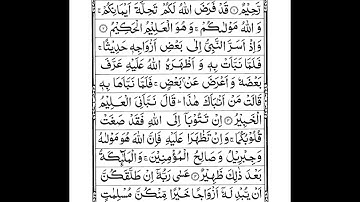 رَّحِيْمٌ ۝۱ قَدْ فَرَضَ اللّٰهُ لَكُمْ تَحِلَّةَ اَيْمَانِكُمْ ۚ
وَاللّٰهُ مَوْلٰىكُمْ ۚ وَهُوَ الْعَلِيْمُ الْحَكِيْمُ ۝۲
وَاِذْ اَسَرَّ النَّبِيُّ اِلٰى بَعْضِ اَزْوَاجِهٖ حَدِيْثًا ۚ
فَلَمَّا نَبَّاَتْ بِهٖ وَاَظْهَرَهُ اللّٰهُ عَلَيْهِ عَرَّفَ
بَعْضَهٗ وَاَعْرَضَ عَنْۢ بَعْضٍ ۚ فَلَمَّا نَبَّاَهَا بِهٖ
قَالَتْ مَنْ اَنْۢبَاَكَ هٰذَا ؕ قَالَ نَبَّاَنِيَ الْعَلِيْمُ
الْخَبِيْرُ ۝۳ اِنْ تَتُوْبَاۤ اِلَى اللّٰهِ فَقَدْ صَغَتْ
قُلُوْبُكُمَا ۚ وَاِنْ تَظٰهَرَا عَلَيْهِ فَاِنَّ اللّٰهَ هُوَ مَوْلٰىهُ
وَجِبْرِيْلُ وَصَالِحُ الْمُؤْمِنِيْنَ ۚ وَالْمَلٰٓئِكَةُ
بَعْدَ ذٰلِكَ ظَهِيْرٌ ۝۴ عَسٰى رَبُّهٗۤ اِنْ طَلَّقَكُنَّ
اَنْ يُّبْدِلَهٗۤ اَزْوَاجًا خَيْرًا مِّنْكُنَّ مُسْلِمٰتٍ